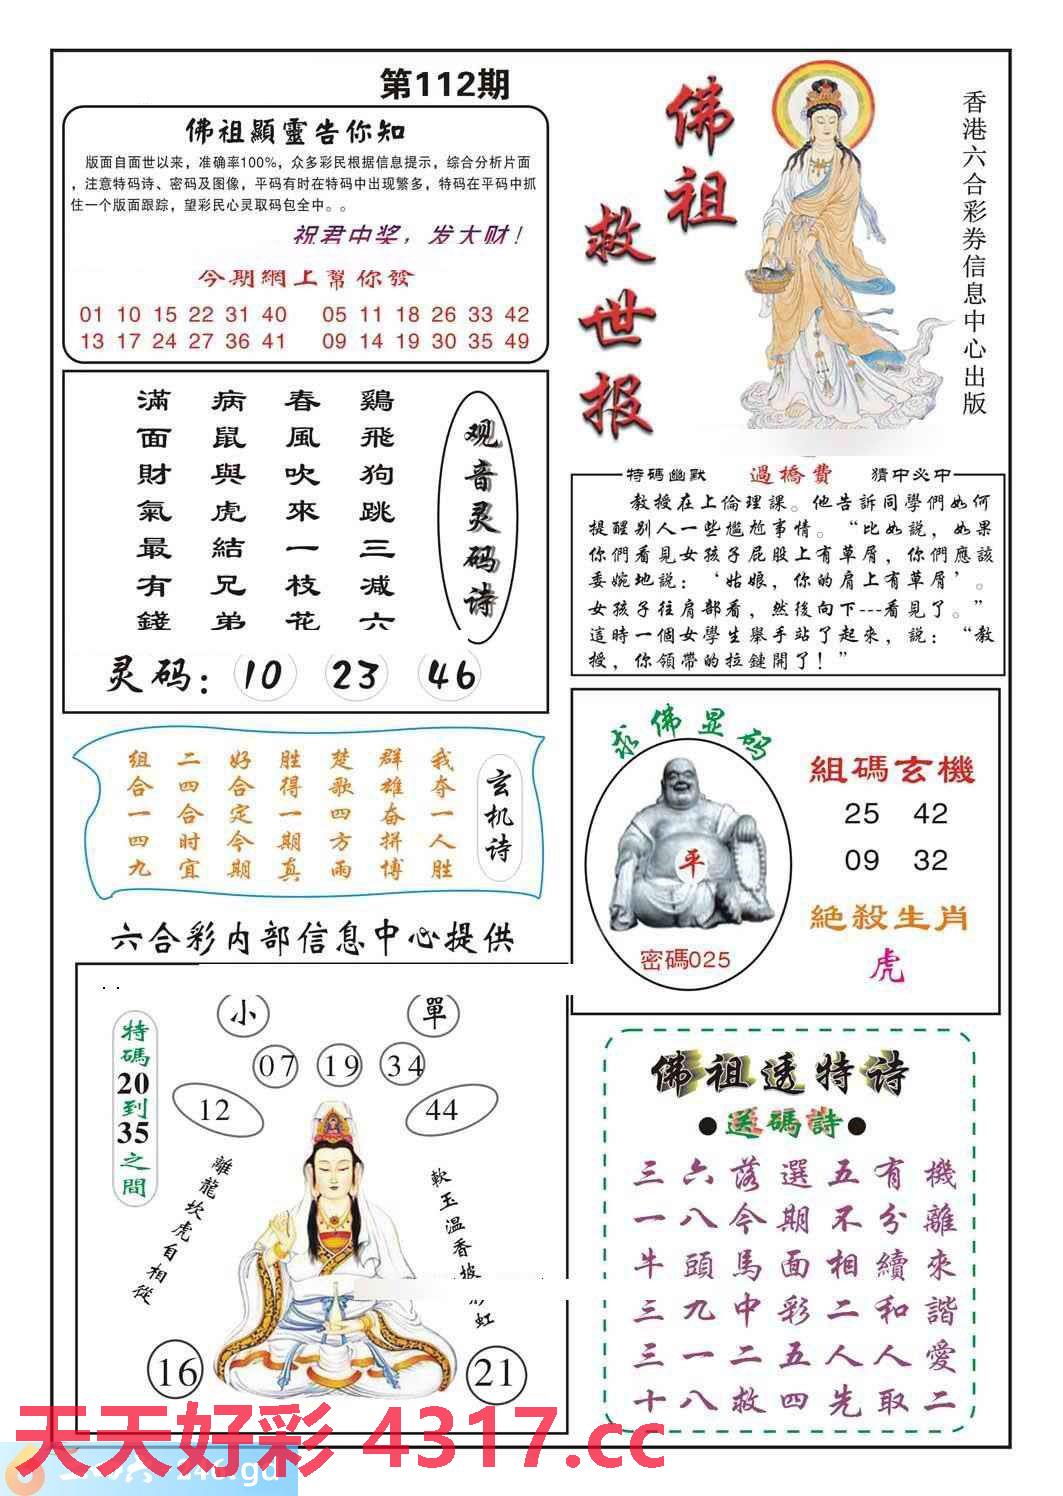 第112期
佛祖顯靈告你知
版面自面世以来，准确率100%，众多彩民根据信息提示，综合分析片面
，注意特码诗、密码及图像，平码有时在特码中出现繁多，特码在平码中抓
住一个版面跟踪，望彩民心灵取码包全中。。
祝君中奖，发大财！
今期網上幫你發
01 10 15 22 31 40 05 11 18 26 33 42
13 17 24 27 36 41 09 14 19 30 35 49
佛祖
救世报
香港六合彩券信息中心出版
观音灵码诗
鷄飛狗跳三减六
春風吹來一枝花
病鼠與虎結兄弟
滿面財氣最有錢
灵码：10 23 46
特碼幽默 過橋費 猜中必中
教授在上倫理課。他告訴同學們如何
提醒别人一些尴尬事情。“比如説，如果
你們看見女孩子屁股上有草屑，你們應該
委婉地説：‘姑娘，你的肩上有草屑’。
女孩子往肩部看，然後向下---看見了。”
這時一個女學生舉手站了起來，説：“教
授，你領帶的拉鏈開了！”
玄机诗
我夺一人胜
群雄奋拼博
楚歌四方雨
胜得一期真
好合定今期
二四合时宜
组合一四九
求佛显码
平
密碼025
組碼玄機
25 42
09 32
絶殺生肖
虎
六合彩内部信息中心提供
特碼20到35之間
小 單
07 19 34
12 44
離龍坎虎自相從
軟玉温香披彩虹
16 21
佛祖透特诗
●送碼詩●
三六落選五有機
一八今期不分離
牛頭馬面相續來
三九中彩二和諧
三一二五人人愛
十八救四先取二
天天好彩 4317.cc
246.gd